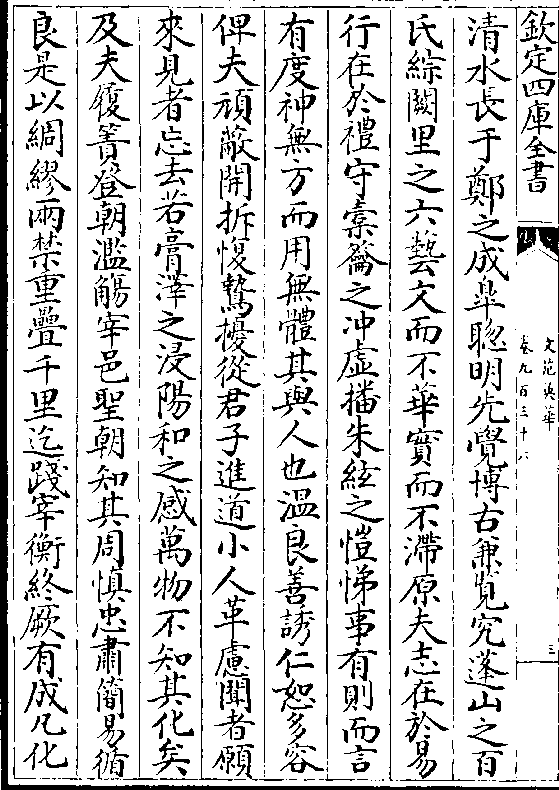 欽定四庫全書
文苑英華
卷九百三十六
三
清水長于鄭之成臯聰明先覺博古兼覧究蓬山之百
氏綜闕里之六藝文而不華實而不滯原夫志在於易
行在於禮守橐籥之冲虚播朱絃之愷悌事有則而言
有度神無方而用無體其與人也温良善誘仁恕多容
俾夫頑蔽開拆愎驁擾從君子進道小人革慮聞者願
來見者忘去若膏澤之浸陽和之感萬物不知其化矣
及夫復菁登朝濫觴宰邑聖朝知其周慎忠肅簡易循
良是以綢繆兩禁重疊千里迄踐宰衡終厥有成凡化